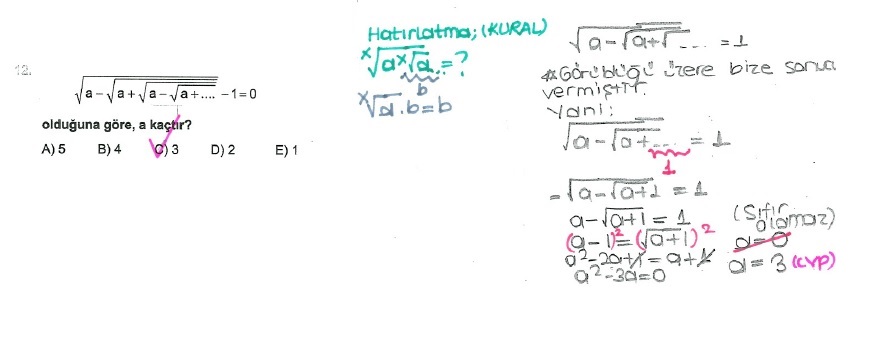 12.
√a-√a+√a-√a+.... -1=0
olduğuna göre, a kaçtır?
A) 5 B) 4 C) 3 D) 2 E) 1
Hatırlatma; (KURAL)
ˣ√aˣ√a...=?
b
ˣ√a.b=b
√a-√a+√.... =1
*Görüldüğü üzere bize sonucu
vermiştir.
Yani:
√a-√a+... = 1
1
=√a-√a+1 = 1
a-√a+1 = 1
(a-1)²=(√a+1)²
a²-2a+1=a+1
a²-3a=0
(Sıfır
olamaz)
a=0
a=3 (cvp)